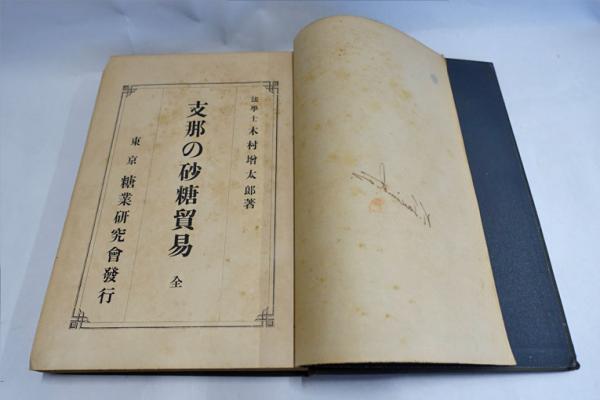 法學士 木村增太郎著
支那の砂糖貿易 全
東京 糖業研究會發行